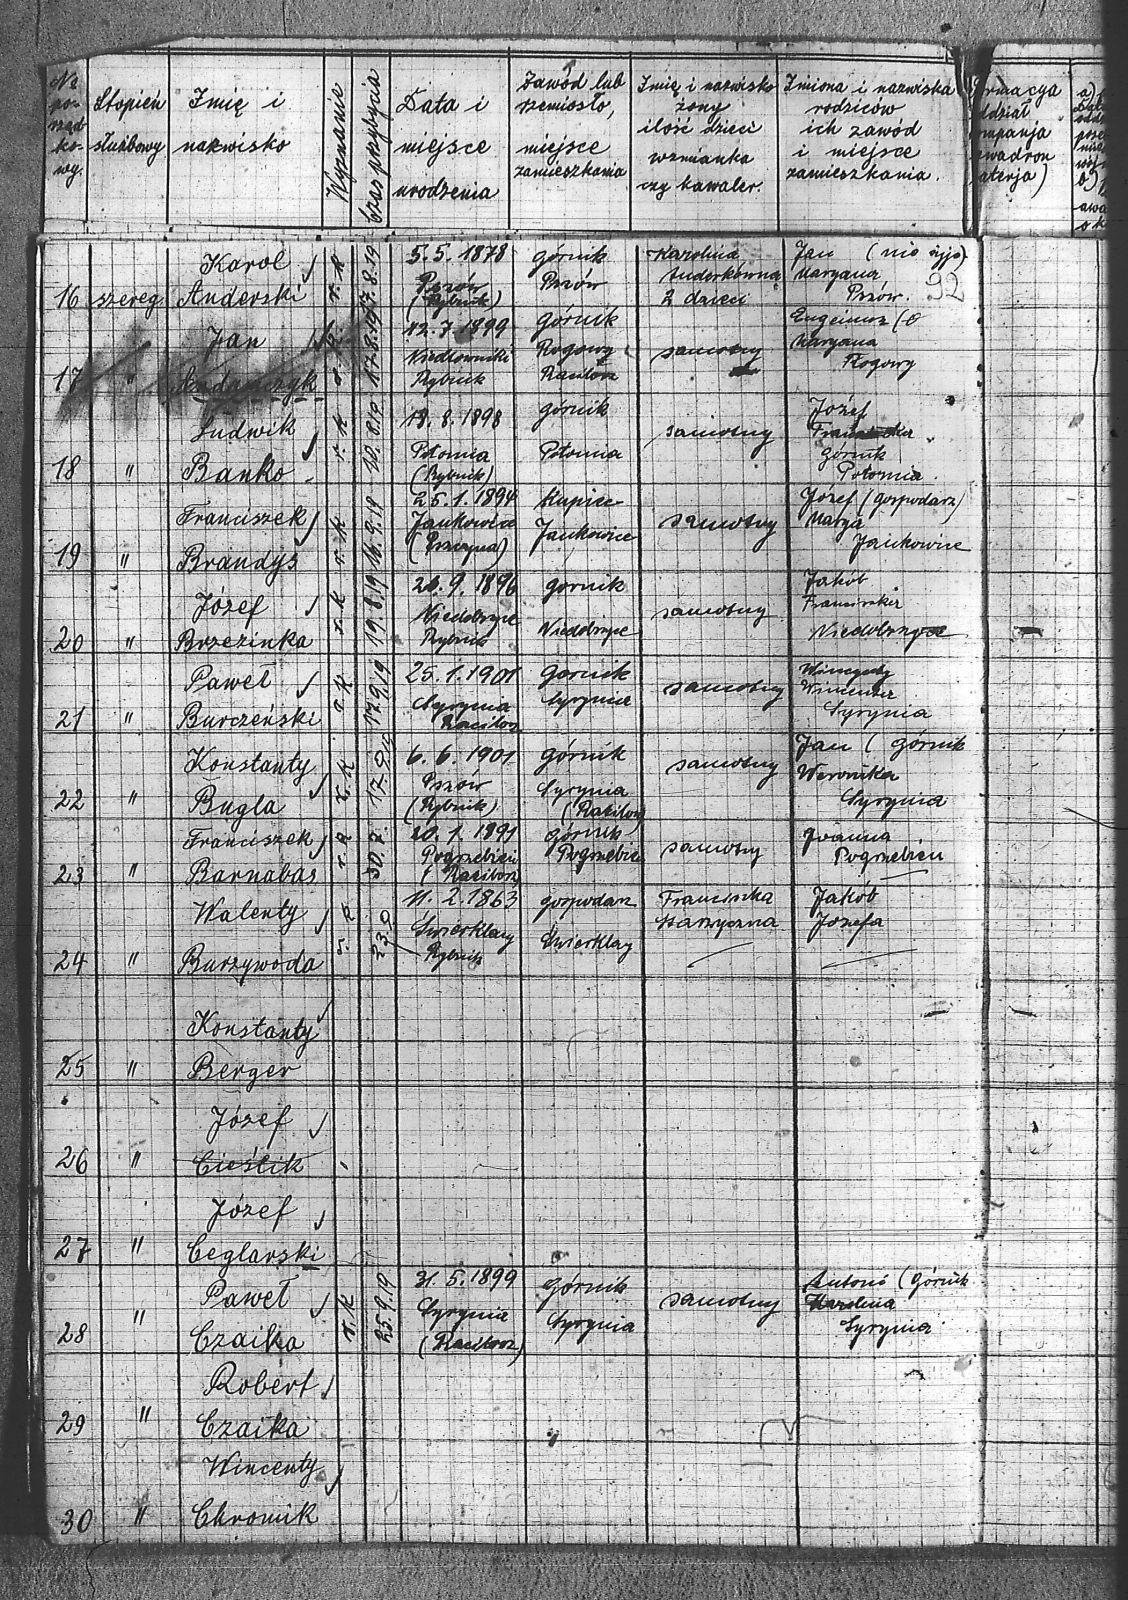 No porządkowy.
Stopień służbowy
Imię i nazwisko
Wyznanie
Czas przybycia
Data i miejsce urodzenia
Zawód lub rzemiosło, miejsce zamieszkania
Imię i nazwisko żony ilość dzieci wzmianka czy kawaler.
Imiona i nazwiska rodziców ich zawód i miejsce zamieszkania.
ormacya
ddział
mpanja
wadron
aterja)
92
16 szereg. Karol Anderski r. k 17.8.19
5.5.1878 Pszów (Rybnik)
górnik Pszów
Karolina
2 dzieci
Jan (nie żyje) Maryanna Pszów.
17 " Jan r. k 17.8.19
12.7.1899
Rybnik
Górnik Rogowy Racibor
samotny
Maryana Rogowy
18 " Ludwik Banko r. k 10.8.19
18.8.1898 Połomia (Rybnik)
górnik Połomia
samotny
Józef
Górnik Połomia
19 " Franciszek Brandys r. k
25.1.1894 Jankowice (Pszczyna)
Kupiec Jankowice
samotny
Józef (gospodarz) Marya Jankowice
20 " Józef Brzezinka r. k 19.8.19
9.1896 Niedobczyce Rybnik
górnik Niedobczyce
samotny
Jakób Franciszka Niedobczyce
21 " Paweł Burczeński r. k 17.9.19
25.1.1901 Syrynia Racibor
Górnik Syrynia
samotny
Wincenty Syrynia
22 " Konstanty Bugla r. k
6.6.1901 Pszów (Rybnik)
górnik Syrynia (Racibor)
samotny
Jan (górnik Weronika Syrynia
23 " Franciszek Barnabas r. k 30.7.
20.1.1891 Pogrzebień (Racibor
górnik Pogrzebień
samotny
Joanna Pogrzebień
24 " Walenty Burzywoda r. k
11.2.1863 Świerklany Rybnik
gospodarz Świerklany
Franciszka
Jakób Józefa
25 " Konstanty Berger
26 " Józef Cieślik
27 " Józef Ceglarski
28 " Paweł Czaika r. k 25.9.19
31.5.1899 Syrynia (Racibor)
Górnik Syrynia
samotny
Antoni (Górnik Karolina Syrynia
29 " Robert Czaika
30 " Wincenty Chromik